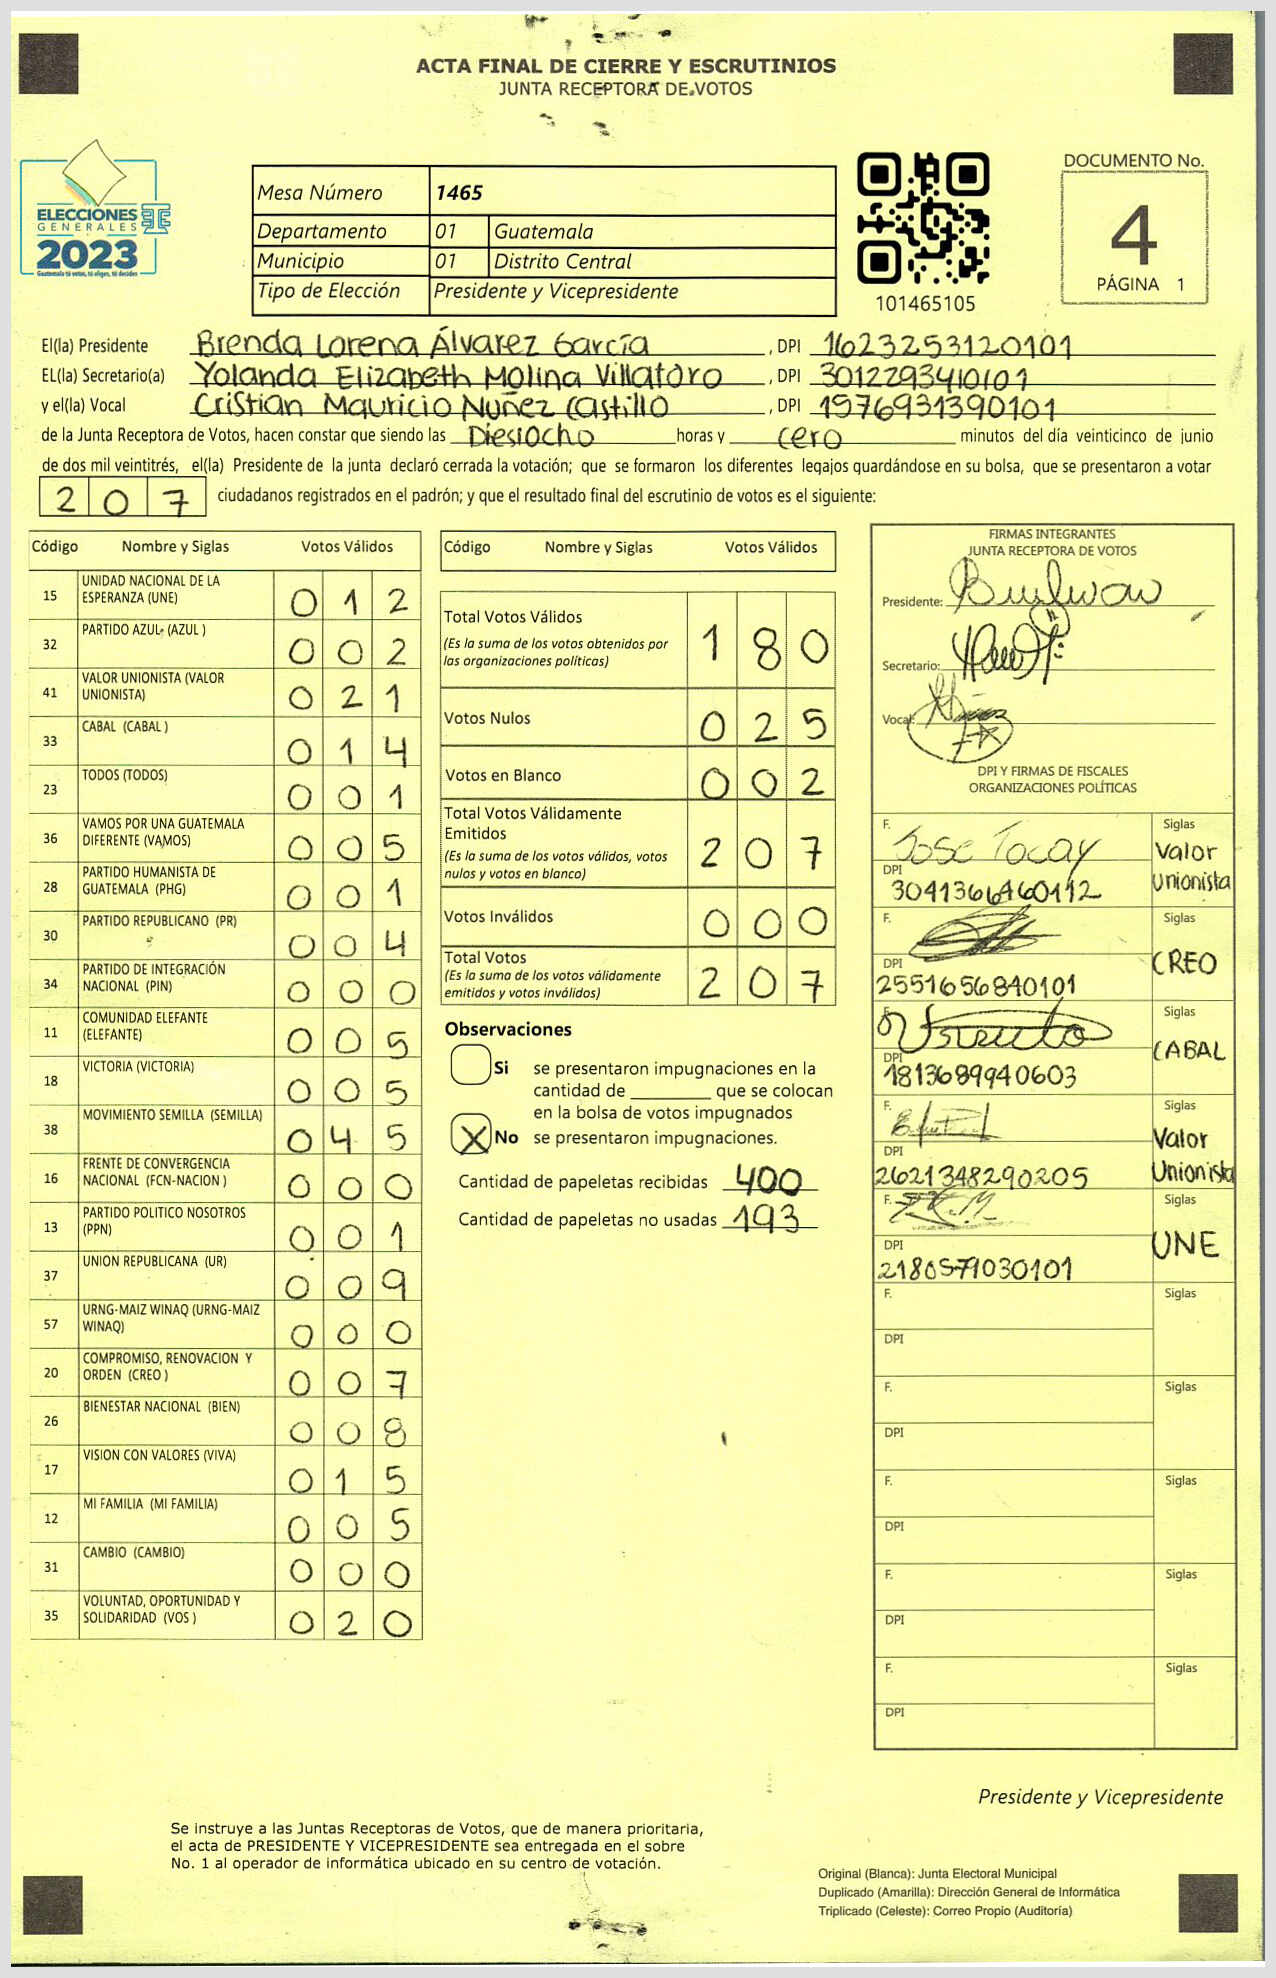 ACTA FINAL DE CIERRE Y ESCRUTINIOS
JUNTA RECEPTORA DE VOTOS
ELECCIONES
GENERALES
2023
Guatemala tú votas, tú eliges, tú decides
Mesa Número 1465
Departamento 01 Guatemala
Municipio 01 Distrito Central
Tipo de Elección Presidente y Vicepresidente
101465105
DOCUMENTO No.
4
PÁGINA 1
El(la) Presidente Brenda Lorena Álvarez García , DPI 1623253120101
EL(la) Secretario(a) Yolanda Elizabeth Molina Villatoro , DPI 3012293410101
y el(la) Vocal Cristian Mauricio Nuñez Castillo , DPI 1576931390101
de la Junta Receptora de Votos, hacen constar que siendo las Diesiocho horas y cero minutos del día veinticinco de junio
de dos mil veintitrés, el(la) Presidente de la junta declaró cerrada la votación; que se formaron los diferentes legajos guardándose en su bolsa, que se presentaron a votar
207 ciudadanos registrados en el padrón; y que el resultado final del escrutinio de votos es el siguiente:
Código Nombre y Siglas Votos Válidos
15 UNIDAD NACIONAL DE LA ESPERANZA (UNE) 012
32 PARTIDO AZUL (AZUL ) 002
41 VALOR UNIONISTA (VALOR UNIONISTA) 021
33 CABAL (CABAL ) 014
23 TODOS (TODOS) 001
36 VAMOS POR UNA GUATEMALA DIFERENTE (VAMOS) 005
28 PARTIDO HUMANISTA DE GUATEMALA (PHG) 001
30 PARTIDO REPUBLICANO (PR) 004
34 PARTIDO DE INTEGRACIÓN NACIONAL (PIN) 000
11 COMUNIDAD ELEFANTE (ELEFANTE) 005
18 VICTORIA (VICTORIA) 005
38 MOVIMIENTO SEMILLA (SEMILLA) 045
16 FRENTE DE CONVERGENCIA NACIONAL (FCN-NACION ) 000
13 PARTIDO POLITICO NOSOTROS (PPN) 001
37 UNION REPUBLICANA (UR) 009
57 URNG-MAIZ WINAQ (URNG-MAIZ WINAQ) 000
20 COMPROMISO, RENOVACION Y ORDEN (CREO ) 007
26 BIENESTAR NACIONAL (BIEN) 008
17 VISION CON VALORES (VIVA) 015
12 MI FAMILIA (MI FAMILIA) 005
31 CAMBIO (CAMBIO) 000
35 VOLUNTAD, OPORTUNIDAD Y SOLIDARIDAD (VOS ) 020
Código Nombre y Siglas Votos Válidos
Total Votos Válidos 180
(Es la suma de los votos obtenidos por
las organizaciones políticas)
Votos Nulos 025
Votos en Blanco 002
Total Votos Válidamente
Emitidos 207
(Es la suma de los votos válidos, votos
nulos y votos en blanco)
Votos Inválidos 000
Total Votos 207
(Es la suma de los votos válidamente
emitidos y votos inválidos)
Observaciones
Si se presentaron impugnaciones en la
cantidad de ________ que se colocan
en la bolsa de votos impugnados
X No se presentaron impugnaciones.
Cantidad de papeletas recibidas 400
Cantidad de papeletas no usadas 193
FIRMAS INTEGRANTES
JUNTA RECEPTORA DE VOTOS
Presidente:
Secretario:
Vocal:
DPI Y FIRMAS DE FISCALES
ORGANIZACIONES POLÍTICAS
F. Jose Tocay Siglas Valor Unionista
DPI 3041366460112
F. Siglas CREO
DPI 2551656840101
F. Siglas CABAL
DPI 1813689940603
F. Siglas Valor Unionista
DPI 2621348290205
F. Siglas UNE
DPI 2180571030101
F. Siglas
DPI
F. Siglas
DPI
F. Siglas
DPI
F. Siglas
DPI
F. Siglas
DPI
Presidente y Vicepresidente
Se instruye a las Juntas Receptoras de Votos, que de manera prioritaria,
el acta de PRESIDENTE Y VICEPRESIDENTE sea entregada en el sobre
No. 1 al operador de informática ubicado en su centro de votación.
Original (Blanca): Junta Electoral Municipal
Duplicado (Amarilla): Dirección General de Informática
Triplicado (Celeste): Correo Propio (Auditoría)